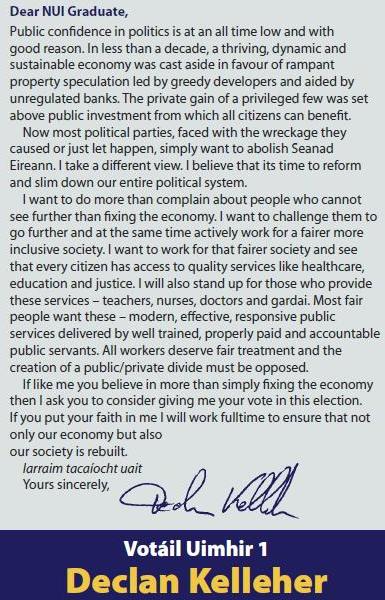 Dear NUI Graduate,
Public confidence in politics is at an all time low and with
good reason. In less than a decade, a thriving, dynamic and
sustainable economy was cast aside in favour of rampant
property speculation led by greedy developers and aided by
unregulated banks. The private gain of a privileged few was set
above public investment from which all citizens can benefit.
Now most political parties, faced with the wreckage they
caused or just let happen, simply want to abolish Seanad
Eireann. I take a different view. I believe that its time to reform
and slim down our entire political system.
I want to do more than complain about people who cannot
see further than fixing the economy. I want to challenge them to
go further and at the same time actively work for a fairer more
inclusive society. I want to work for that fairer society and see
that every citizen has access to quality services like healthcare,
education and justice. I will also stand up for those who provide
these services – teachers, nurses, doctors and gardai. Most fair
people want these – modern, effective, responsive public
services delivered by well trained, properly paid and accountable
public servants. All workers deserve fair treatment and the
creation of a public/private divide must be opposed.
If like me you believe in more than simply fixing the economy
then I ask you to consider giving me your vote in this election.
If you put your faith in me I will work fulltime to ensure that not
only our economy but also
our society is rebuilt.
Iarraim tacaíocht uait
Yours sincerely,
Declan Kelleher
Votáil Uimhir 1
Declan Kelleher